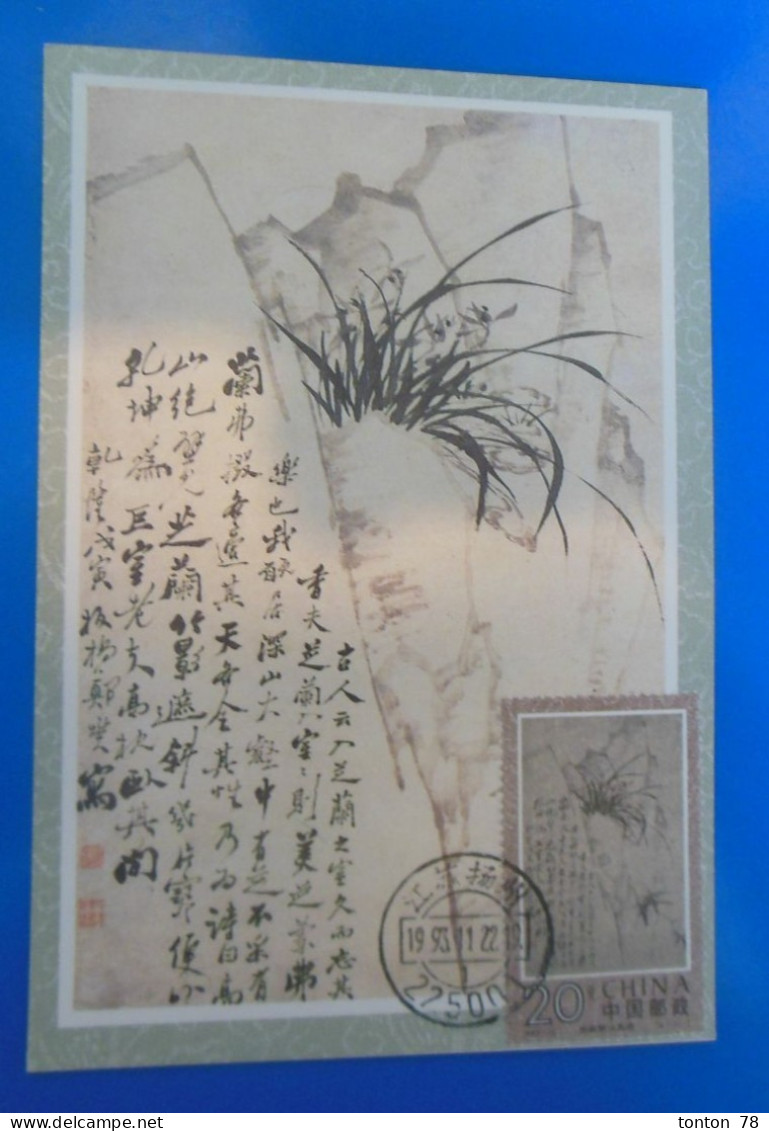 古人云入芝蘭之室久而忘其
香夫芝蘭入室室則美芝蘭弗
樂也我願居深山大壑中有芝不采有
蘭弗掇各適其天各全其性乃为詩曰高
山絶壁見芝蘭竹影遮斜幾片寒便以
乾坤爲巨室老夫高枕臥其間
乾隆戊寅板橋鄭燮寫
江苏扬州
1993.11.22.12
225001
20分 CHINA
中国邮政
tonton 78